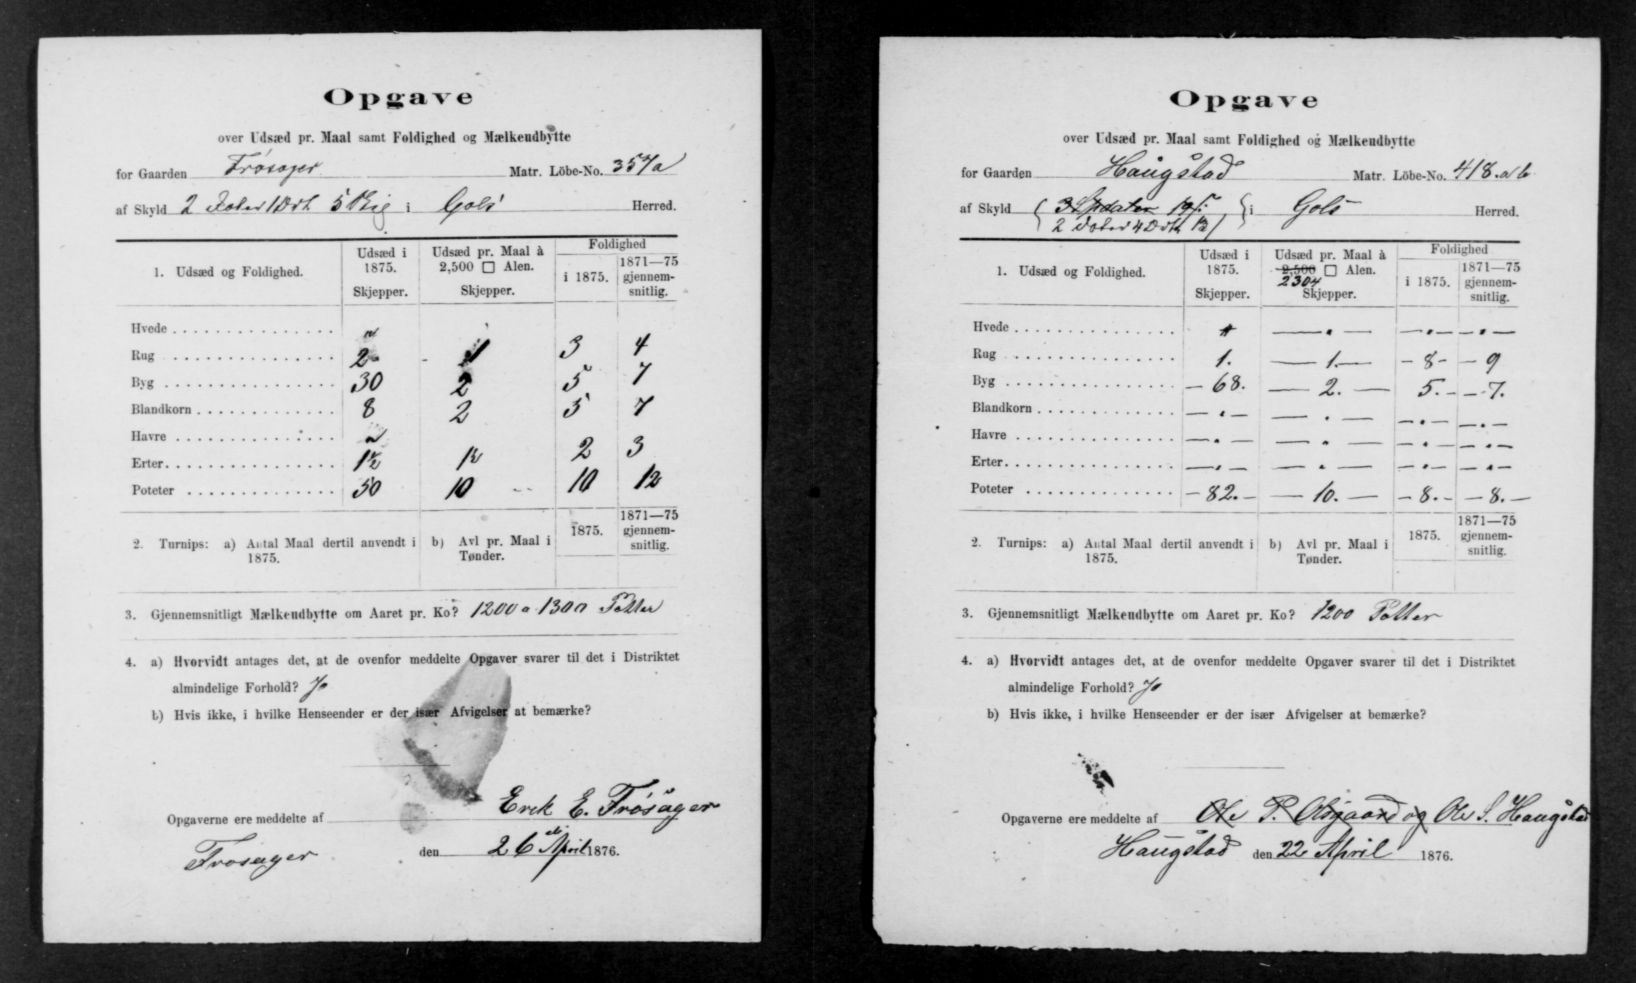 Opgave
over Udsæd pr. Maal samt Foldighed og Mælkeudbytte
for Gaarden Frøsager Matr. Löbe-No. 357a
af Skyld 2 Daler 1 Ort 5 i Gols Herred.
1. Udsæd og Foldighed. Udsæd i 1875. Skjepper. Udsæd pr. Maal à 2,500 □ Alen. Skjepper. Foldighed i 1875. 1871—75 gjennem-snitlig.
Hvede . . . . . . . . . . . . . . . "
Rug . . . . . . . . . . . . . . . . 2 1 3 4
Byg . . . . . . . . . . . . . . . . 30 2 5 7
Blandkorn . . . . . . . . . . . . . 8 2 5 7
Havre . . . . . . . . . . . . . . . "
Erter . . . . . . . . . . . . . . . 1½ 1½ 2 3
Poteter . . . . . . . . . . . . . . 50 10 10 12
2. Turnips: a) Antal Maal dertil anvendt i 1875. b) Avl pr. Maal i Tønder. 1875. 1871—75 gjennem-snitlig.
3. Gjennemsnitligt Mælkeudbytte om Aaret pr. Ko? 1200 a 1300 Potter
4. a) Hvorvidt antages det, at de ovenfor meddelte Opgaver svarer til det i Distriktet
almindelige Forhold? Jo
b) Hvis ikke, i hvilke Henseender er der især Afvigelser at bemærke?
Opgaverne ere meddelte af Erik E. Frøsager
Frøsager den 26de April 1876.
Opgave
over Udsæd pr. Maal samt Foldighed og Mælkeudbytte
for Gaarden Haugstad Matr. Löbe-No. 418.ab
af Skyld i Gols Herred.
2 Daler 4 Ort 13
1. Udsæd og Foldighed. Udsæd i 1875. Skjepper. Udsæd pr. Maal à 2,500 □ Alen. 2304 Skjepper. Foldighed i 1875. 1871—75 gjennem-snitlig.
Hvede . . . . . . . . . . . . . . . — . — — . — — . —
Rug . . . . . . . . . . . . . . . . 1. — 1. — – 8 – – 9
Byg . . . . . . . . . . . . . . . . – 68. — 2. — 5. – – 7.
Blandkorn . . . . . . . . . . . . . – . – — . — – . – – . –
Havre . . . . . . . . . . . . . . . – . – — . — – . – – . –
Erter . . . . . . . . . . . . . . . – . – — . — – . – – . –
Poteter . . . . . . . . . . . . . . – 82. – — 10. — – 8. – – 8. –
2. Turnips: a) Antal Maal dertil anvendt i 1875. b) Avl pr. Maal i Tønder. 1875. 1871—75 gjennem-snitlig.
3. Gjennemsnitligt Mælkeudbytte om Aaret pr. Ko? 1200 Potter
4. a) Hvorvidt antages det, at de ovenfor meddelte Opgaver svarer til det i Distriktet
almindelige Forhold? Jo
b) Hvis ikke, i hvilke Henseender er der især Afvigelser at bemærke?
Opgaverne ere meddelte af Ole P. Olsgaard og Ole S. Haugstad
Haugstad den 22 April 1876.